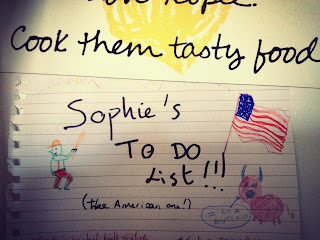 Cook them tasty food
Sophie's
TO DO
List!!!
(the American one!)